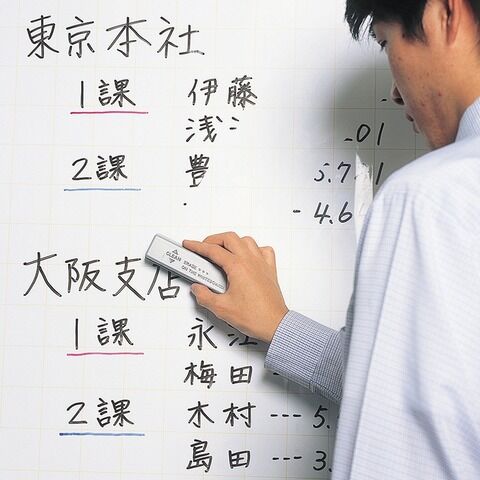 東京本社
1課 伊藤
浅
.01
2課 豊 5.7
- 4.6
大阪支店
CLEAN ERASE
ON THE WHITEBOARD
1課 永江
梅田 --
2課 木村 --- 5.
島田 --- 3.